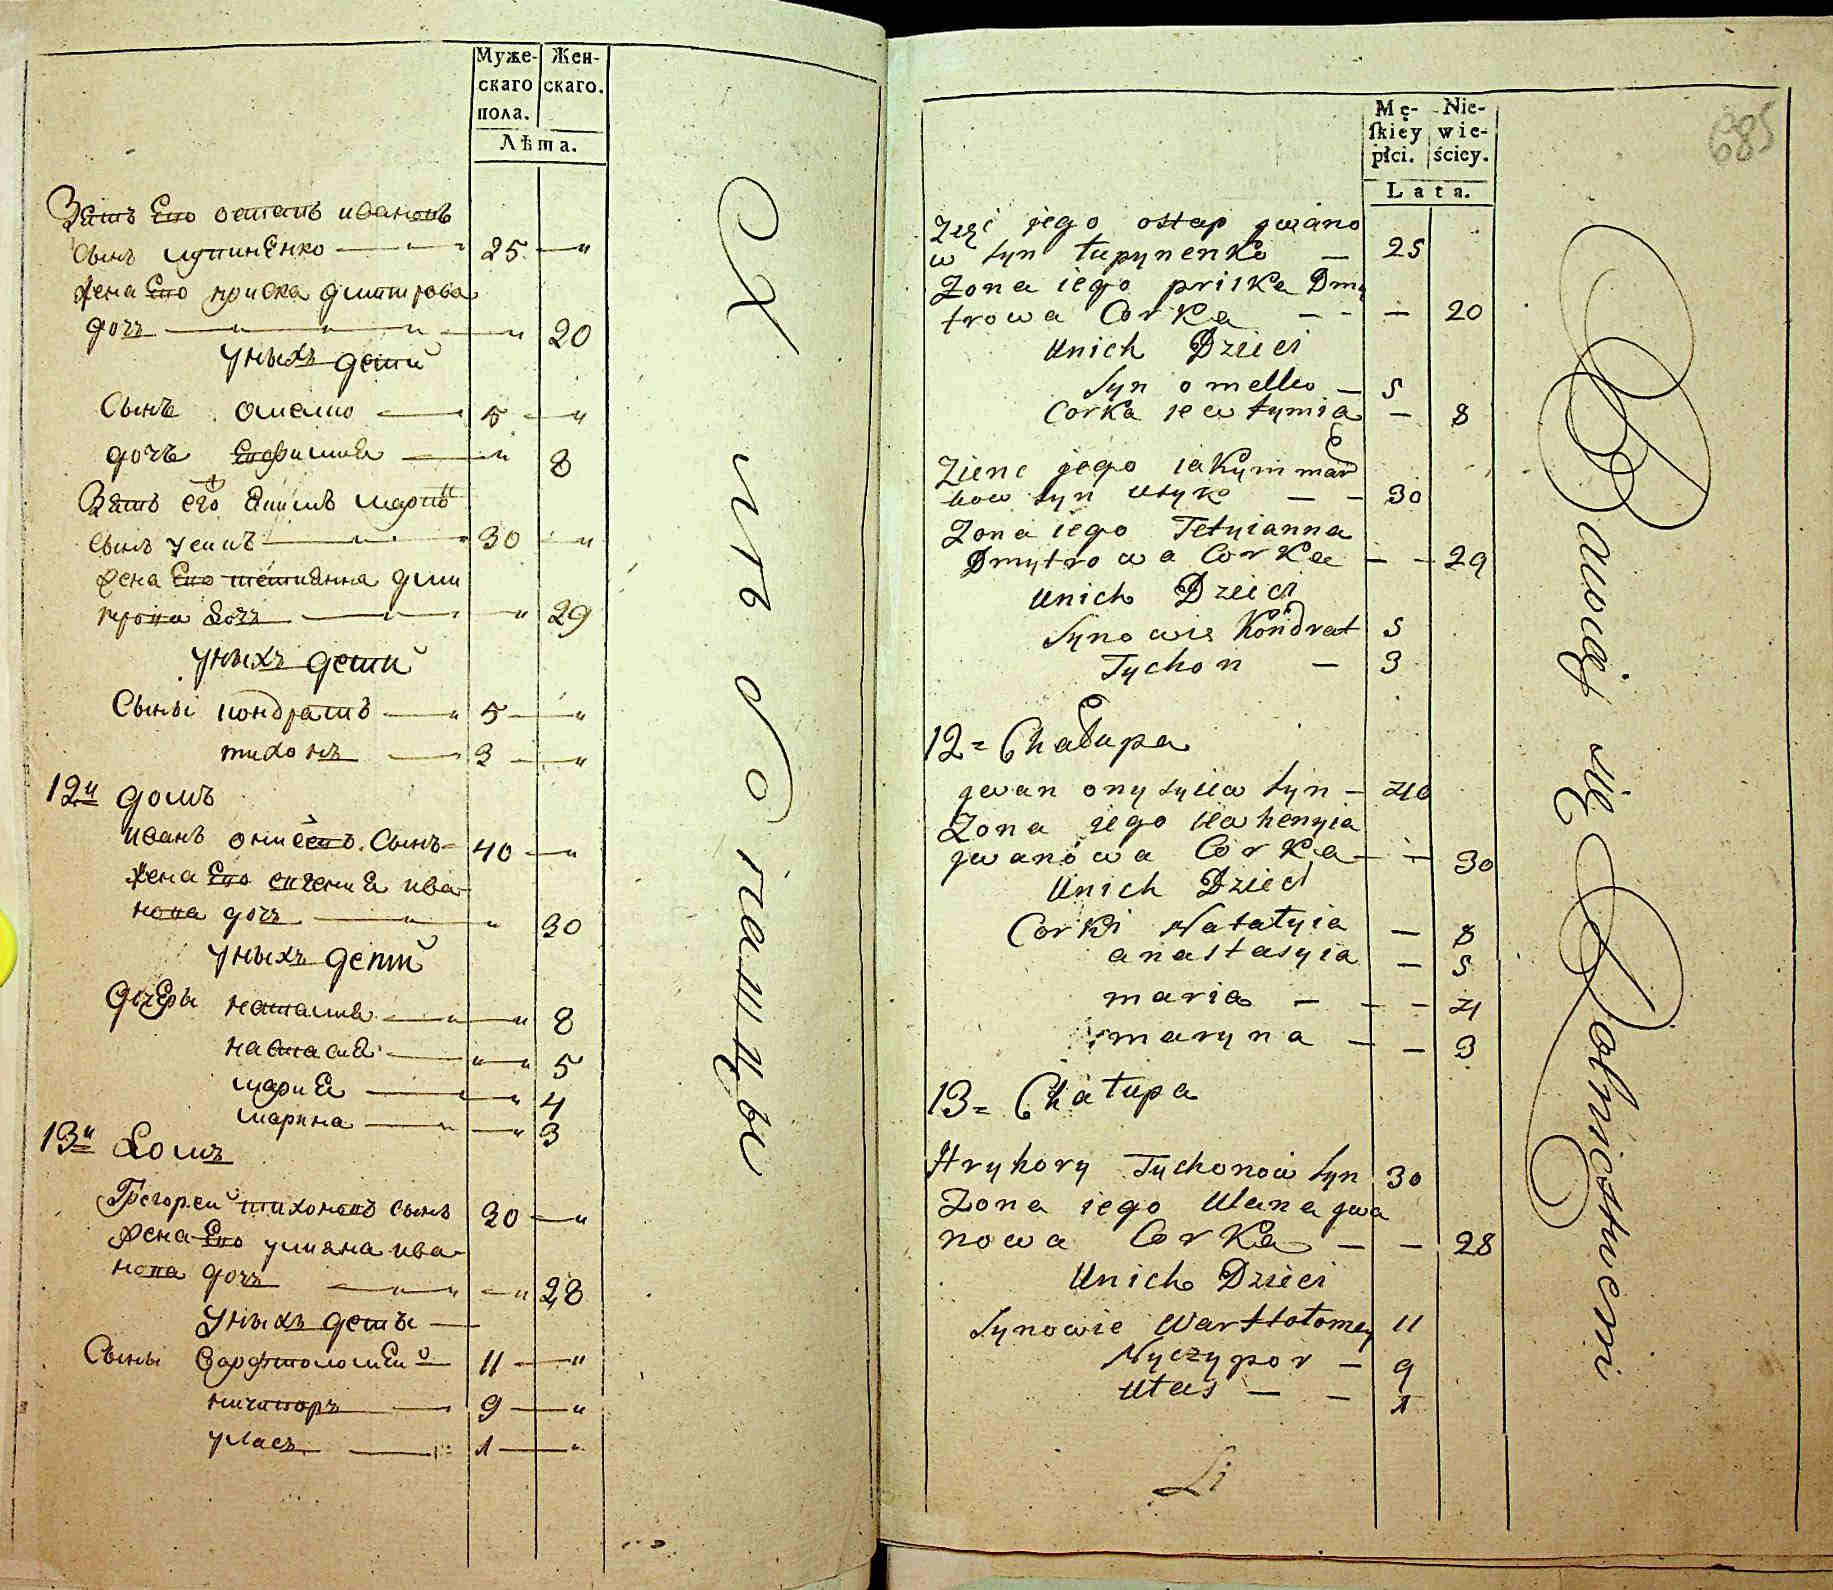 Муже- Жен-
скаго скаго.
пола.
Лѣта.
Зять Его остапъ ивановъ
сынъ лупинЕнко 25 "
жена Его приска дмитрова
дочь " 20
У нихъ дети
Сынъ омелко 5 "
дочь Евфимия " 8
Зять его Якимъ марковъ
сынъ усикъ 30 "
жена Его тетиянна дми
трова дочь " 29
У нихъ дети
Сыны кондратъ 5 "
тихонъ 3 "
12й домъ
иванъ онисевъ Сынъ 40 "
жена Его евгения ива
нова дочь " 30
У нихъ дети
дочЕри наталия " 8
настасия " 5
мария " 4
марина " 3
13й домъ
Григорей тихоновъ сынъ 30 "
жена Его улияна ива
нова дочь " 28
У нихъ дети
Сыны Варфтоломей 11 "
ничипоръ 9 "
уласъ 1 "
Хлѣбопашцы
685
Mę- Nie-
ſkiey wie-
płci. ściey.
Lata.
Zięć jego ostap jwano
w syn łupynenko — 25
Zona iego priska Dmy
trowa Corka — — — 20
Unich Dzieci
Syn omelko — 5
Corka jewtymia — 8
Zienc jego iakym mar
kow syn usyk — — 30
Zona iego Tetyianna
Dmytrowa Corka — — 29
Unich Dzieci
Synowie Kondrat 5
Tychon — 3
12 = Chałupa
jwan onysyiew syn — 40
Zona jego iewhenyia
jwanowa Corka — — 30
Unich Dzieci
Corki Natałyia — 8
anastasyia — 5
maria — — — 4
maryna — — 3
13 = Chałupa
Hryhory Tychonow syn 30
Zona iego Ulana jwa
nowa Corka — — 28
Unich Dzieci
Synowie Warftołomey 11
Nyczypor — 9
Ułas — — 1
Bawią się Rolnictwem